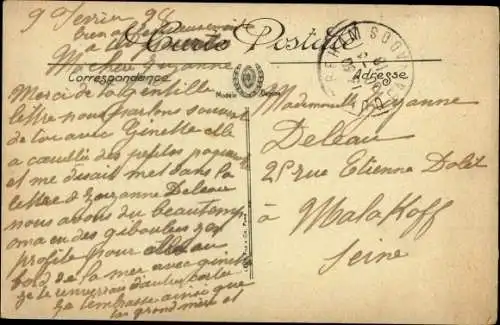 9 Fevrier 28
bien affectueusement
a
Ma chère Suzanne
Carte Postale
Correspondance
Adresse
Merci de ta Gentille
lettre nous parlons souvent
de toi avec Ginette elle
a cueilli des petites
et me disait met dans la
lettre a Suzanne Deleau
nous avons du beau temps
on a eu des giboulées
profite pour aller au
bord de la mer avec Ginette
je te renverrai d'autres cartes
je t'embrasse ainsi que
ta grand mère et
Mademoiselle Suzanne
Deleau
25 rue Etienne Dolet
à Malakoff
Seine